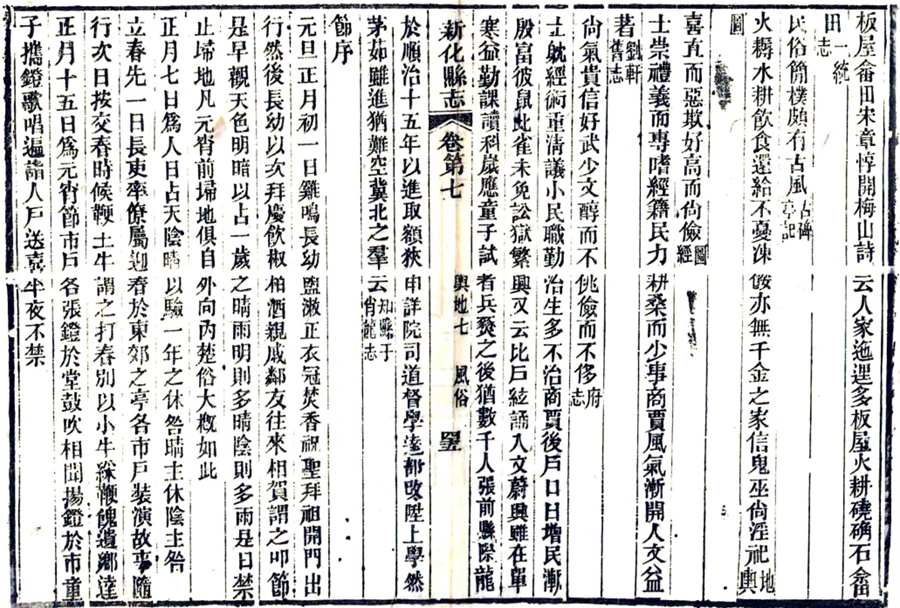 板屋畬田宋章惇開梅山詩云人家迤邐多板屋火耕磽确石畬
田一統志
民俗簡樸頗有古風古碑亭記
火耨水耕飲食還給不憂凍餒亦無千金之家信鬼巫尚淫祀地輿
圖
喜直而惡欺好高而尚儉圖經
士崇禮義而專嗜經籍民力耕桑而少事商賈風氣漸開人文益
著劉軒舊志
尚氣貴信好武少文醇而不佻儉而不侈府志
士耽經術重清議小民職勤治生多不治商賈後戶口日增民漸
殷富彼鼠此雀未免訟獄繁興又云比戶絃誦人文蔚興雖在單
寒益勤課讀科歲應童子試者兵燹之後猶數千人張前縣際龍
新化縣志 卷第七 輿地七 風俗
於順治十五年以進取額狹申詳院司道督學遂都改陞上學然
茅茹雖進猶難空冀北之羣云知縣于肖龍志
節序
元旦正月初一日雞鳴長幼盥漱正衣冠焚香祝聖拜祖開門出
行然後長幼以次拜慶飲椒柏酒親戚鄰友往來相賀謂之叩節
是早觀天色明暗以占一歲之晴雨明則多晴陰則多雨是日禁
止掃地凡元宵前掃地俱自外向內楚俗大概如此
正月七日爲人日占天陰晴以驗一年之休咎晴主休陰主咎
立春先一日長吏率僚屬迎春於東郊之亭各市戶裝演故事隨
行次日按交春時候鞭土牛謂之打春別以小牛綵鞭餽遺鄉達
正月十五日爲元宵節市戶各張鐙於堂鼓吹相聞揚鐙於市童
子攜鐙歌唱遍詣人戶送喜半夜不禁